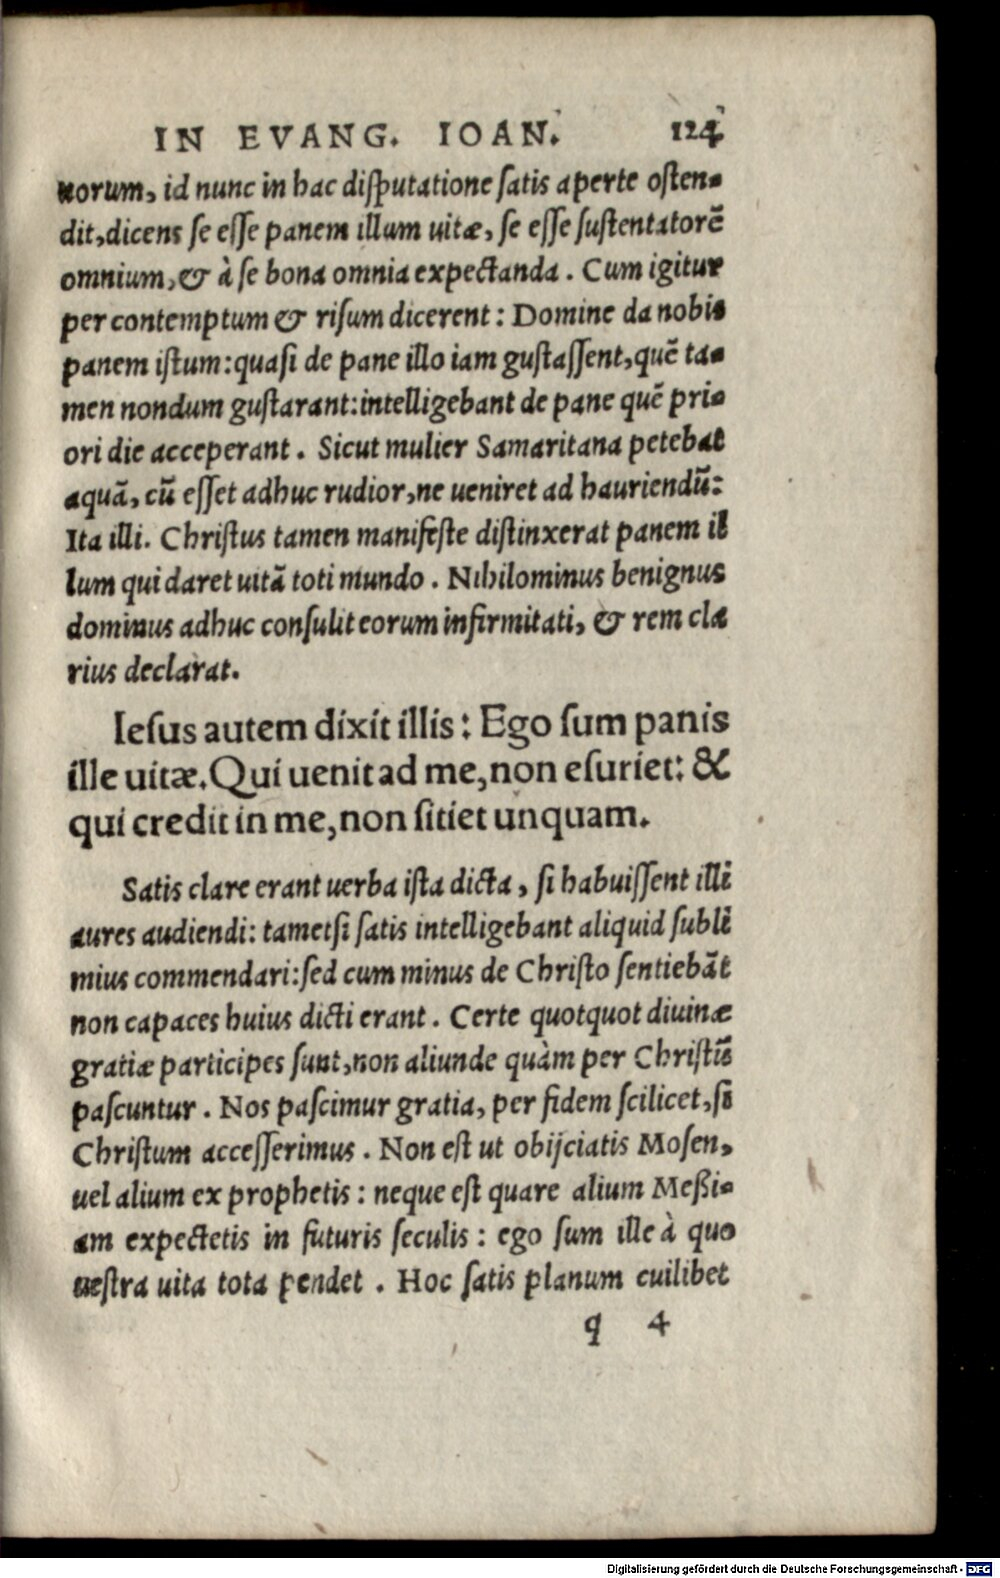 IN EVANG. IOAN. 124
uorum, id nunc in hac disputatione satis aperte osten-
dit, dicens se esse panem illum uitæ, se esse sustentatorē
omnium, & à se bona omnia expectanda. Cum igitur
per contemptum & risum dicerent: Domine da nobis
panem istum: quasi de pane illo iam gustassent, quē ta-
men nondum gustarant: intelligebant de pane quē pri-
ori die acceperant. Sicut mulier Samaritana petebat
aquā, cū esset adhuc rudior, ne ueniret ad hauriendū:
Ita illi. Christus tamen manifeste distinxerat panem il
lum qui daret uitā toti mundo. Nihilominus benignus
dominus adhuc consulit eorum infirmitati, & rem cla
rius declarat.
Iesus autem dixit illis: Ego sum panis
ille uitæ. Qui uenit ad me, non esuriet: &
qui credit in me, non sitiet unquam.
Satis clare erant uerba ista dicta, si habuissent illi
aures audiendi: tametsi satis intelligebant aliquid subli
mius commendari: sed cum minus de Christo sentiebāt
non capaces huius dicti erant. Certe quotquot diuinæ
gratiæ participes sunt, non aliunde quàm per Christū
pascuntur. Nos pascimur gratia, per fidem scilicet, si
Christum accesserimus. Non est ut obijciatis Mosen,
uel alium ex prophetis: neque est quare alium Meßi-
am expectetis in futuris seculis: ego sum ille à quo
uestra uita tota pendet. Hoc satis planum cuilibet
q 4
Digitalisierung gefördert durch die Deutsche Forschungsgemeinschaft - DFG